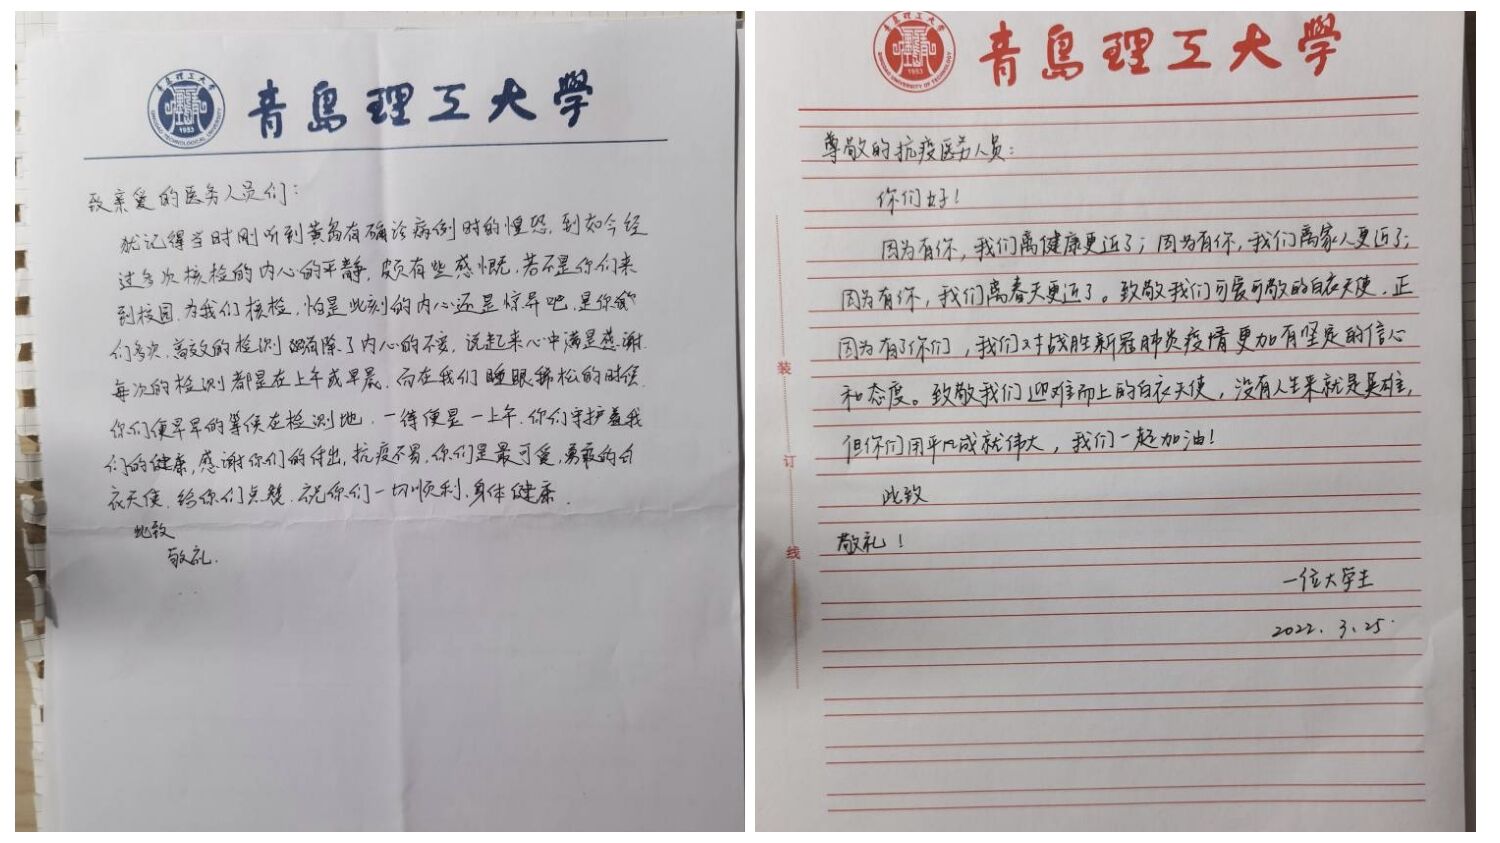 青岛理工大学
青岛理工大学
QINGDAO TECHNOLOGICAL UNIVERSITY
1953
致亲爱的医务人员们：
犹记得当时刚听到黄岛有确诊病例时的惶恐，到如今经
过多次核检的内心的平静，颇有些感慨，若不是你们来
到校园，为我们核检，怕是此刻的内心还是惊异吧，是你
们多次，高效的检测 除了内心的不安，说起来心中满是感谢.
每次的检测都是在上午或早晨，而在我们睡眼稀松的时候，
你们便早早的等候在检测地，一待便是一上午，你们守护着我
们的健康，感谢你们的付出，抗疫不易，你们是最可爱，勇敢的白
衣天使，给你们点赞，祝你们一切顺利，身体健康.
此致
敬礼.
青岛理工大学
青岛理工大学
QINGDAO UNIVERSITY OF TECHNOLOGY
1953
尊敬的抗疫医务人员：
你们好！
因为有你，我们离健康更近了；因为有你，我们离家人更近了；
因为有你，我们离春天更近了。致敬我们可爱可敬的白衣天使，正
因为有了你们，我们对战胜新冠肺炎疫情更加有坚定的信心
和态度。致敬我们迎难而上的白衣天使，没有人生来就是英雄，
但你们用平凡成就伟大，我们一起加油！
此致
敬礼！
一位大学生
2022.3.25.
装
订
线